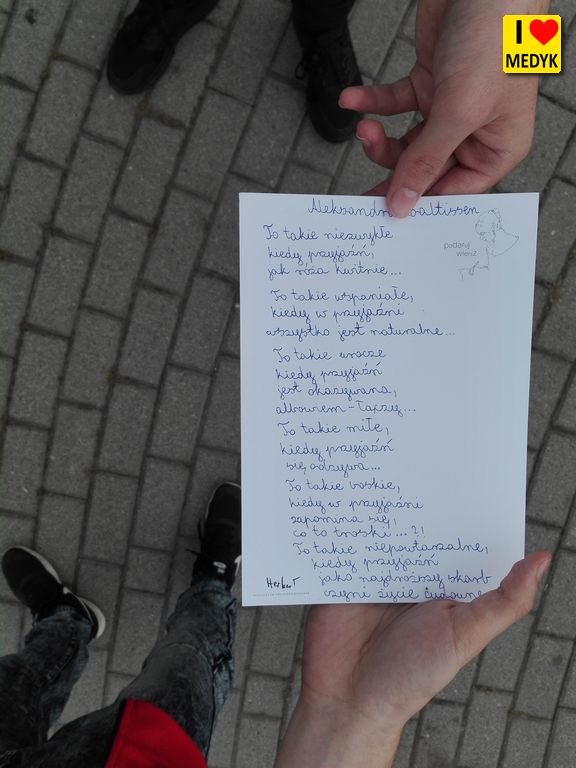 I ❤ MEDYK
Aleksandra
To takie niezwykłe
kiedy przyjaźń,
jak róża kwitnie...
podaruj
wiersz
To takie wspaniałe,
kiedy w przyjaźni
wszystko jest naturalne...
To takie urocze
kiedy przyjaźń
jest okazywana,
albowiem - łączy...
To takie miłe,
kiedy przyjaźń
się odzywa...
To takie boskie,
kiedy w przyjaźni
zapomina się,
co to troski ... ?!
To takie niepowtarzalne,
kiedy przyjaźń
jako najdroższy skarb
czyni życie cudowne
HerberT